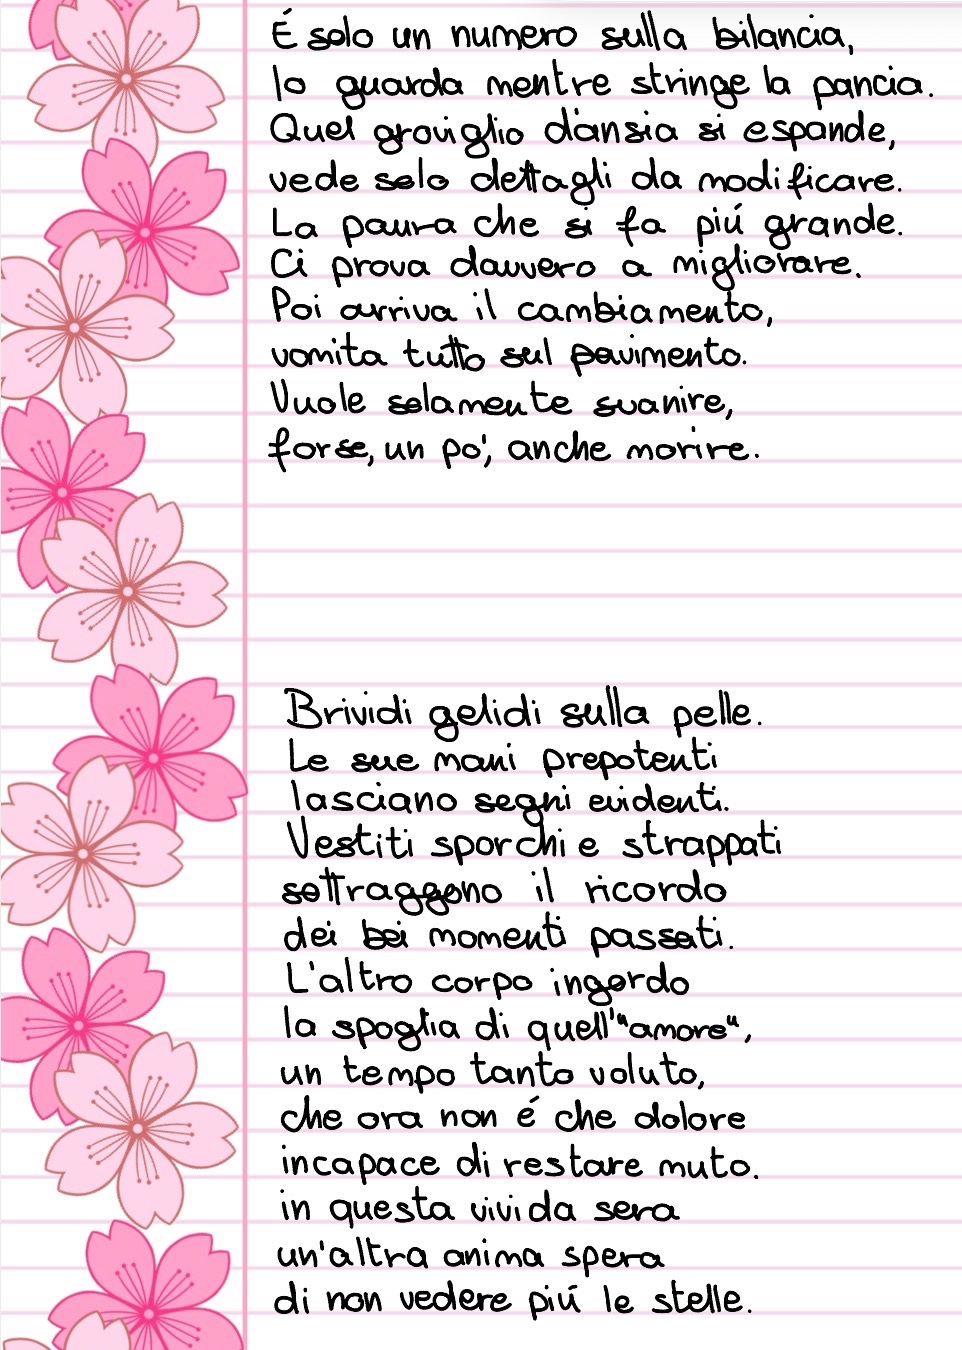 É solo un numero sulla bilancia,
lo guarda mentre stringe la pancia.
Quel groviglio d'ansia si espande,
vede solo dettagli da modificare.
La paura che si fa piú grande.
Ci prova davvero a migliorare.
Poi arriva il cambiamento,
vomita tutto sul pavimento.
Vuole solamente svanire,
forse, un po', anche morire.
Brividi gelidi sulla pelle.
Le sue mani prepotenti
lasciano segni evidenti.
Vestiti sporchi e strappati
sottraggono il ricordo
dei bei momenti passati.
L'altro corpo ingordo
la spoglia di quell'"amore",
un tempo tanto voluto,
che ora non é che dolore
incapace di restare muto.
in questa vivida sera
un'altra anima spera
di non vedere piú le stelle.